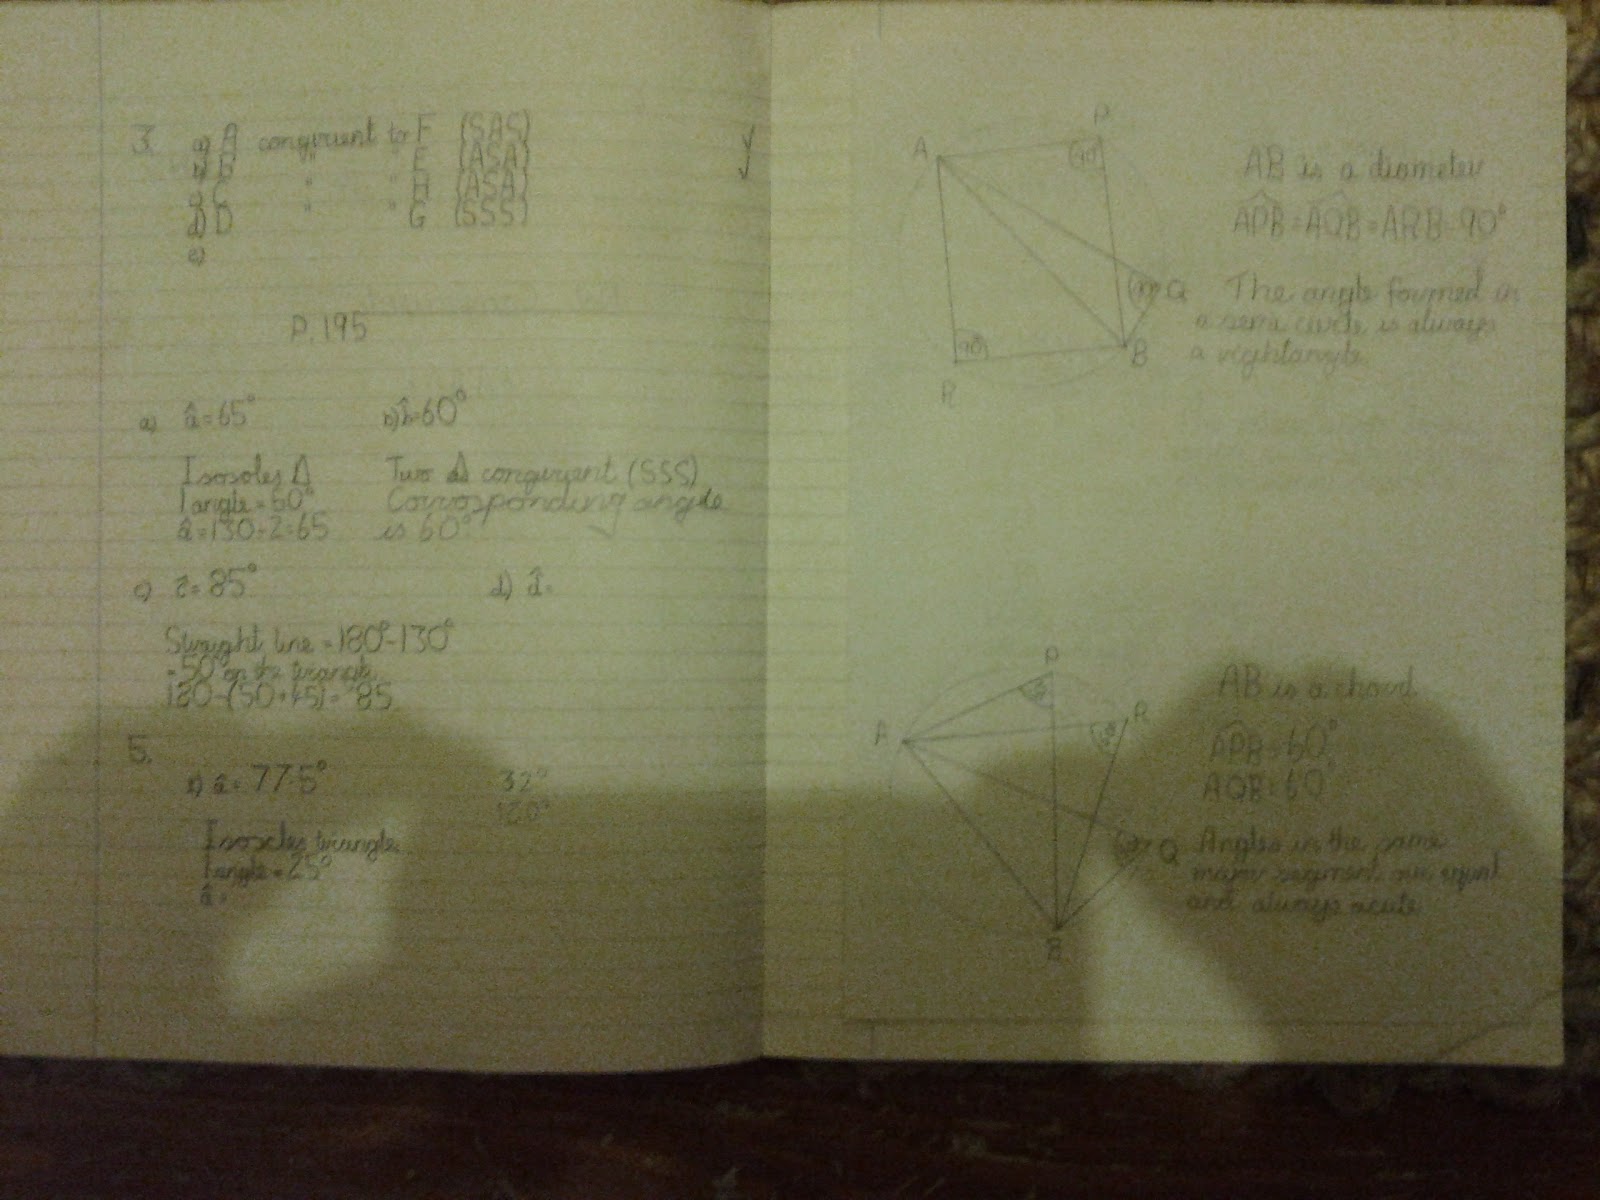 3. a) A congruent to F (SAS)
b) B " " E (ASA)
c) C " " H (ASA)
d) D " " G (SSS)
e)
P.195
a) â = 65° b) b̂ = 60°
Isosoles Δ Two Δ congruent (SSS)
1 angle = 50° Corrosponding angle
â = 130÷2=65 is 60°
c) ĉ = 85° d) d̂ =
Straight line = 180°-130°
= 50° on the
180-(50+45)= 85
5.
â = 77.5° 32°
Isosceles triangle
1 angle = 25°
â =
A
P
90°
Q
90°
B
R
AB is a diameter
APB = AQB = ARB = 90°
The angle formed in
a semi circle is always
a rightangle
P
A
R
Q
B
AB is a chord
APB = 60°
AQB = 60°
Angles in the same
segment are equal
and always acute